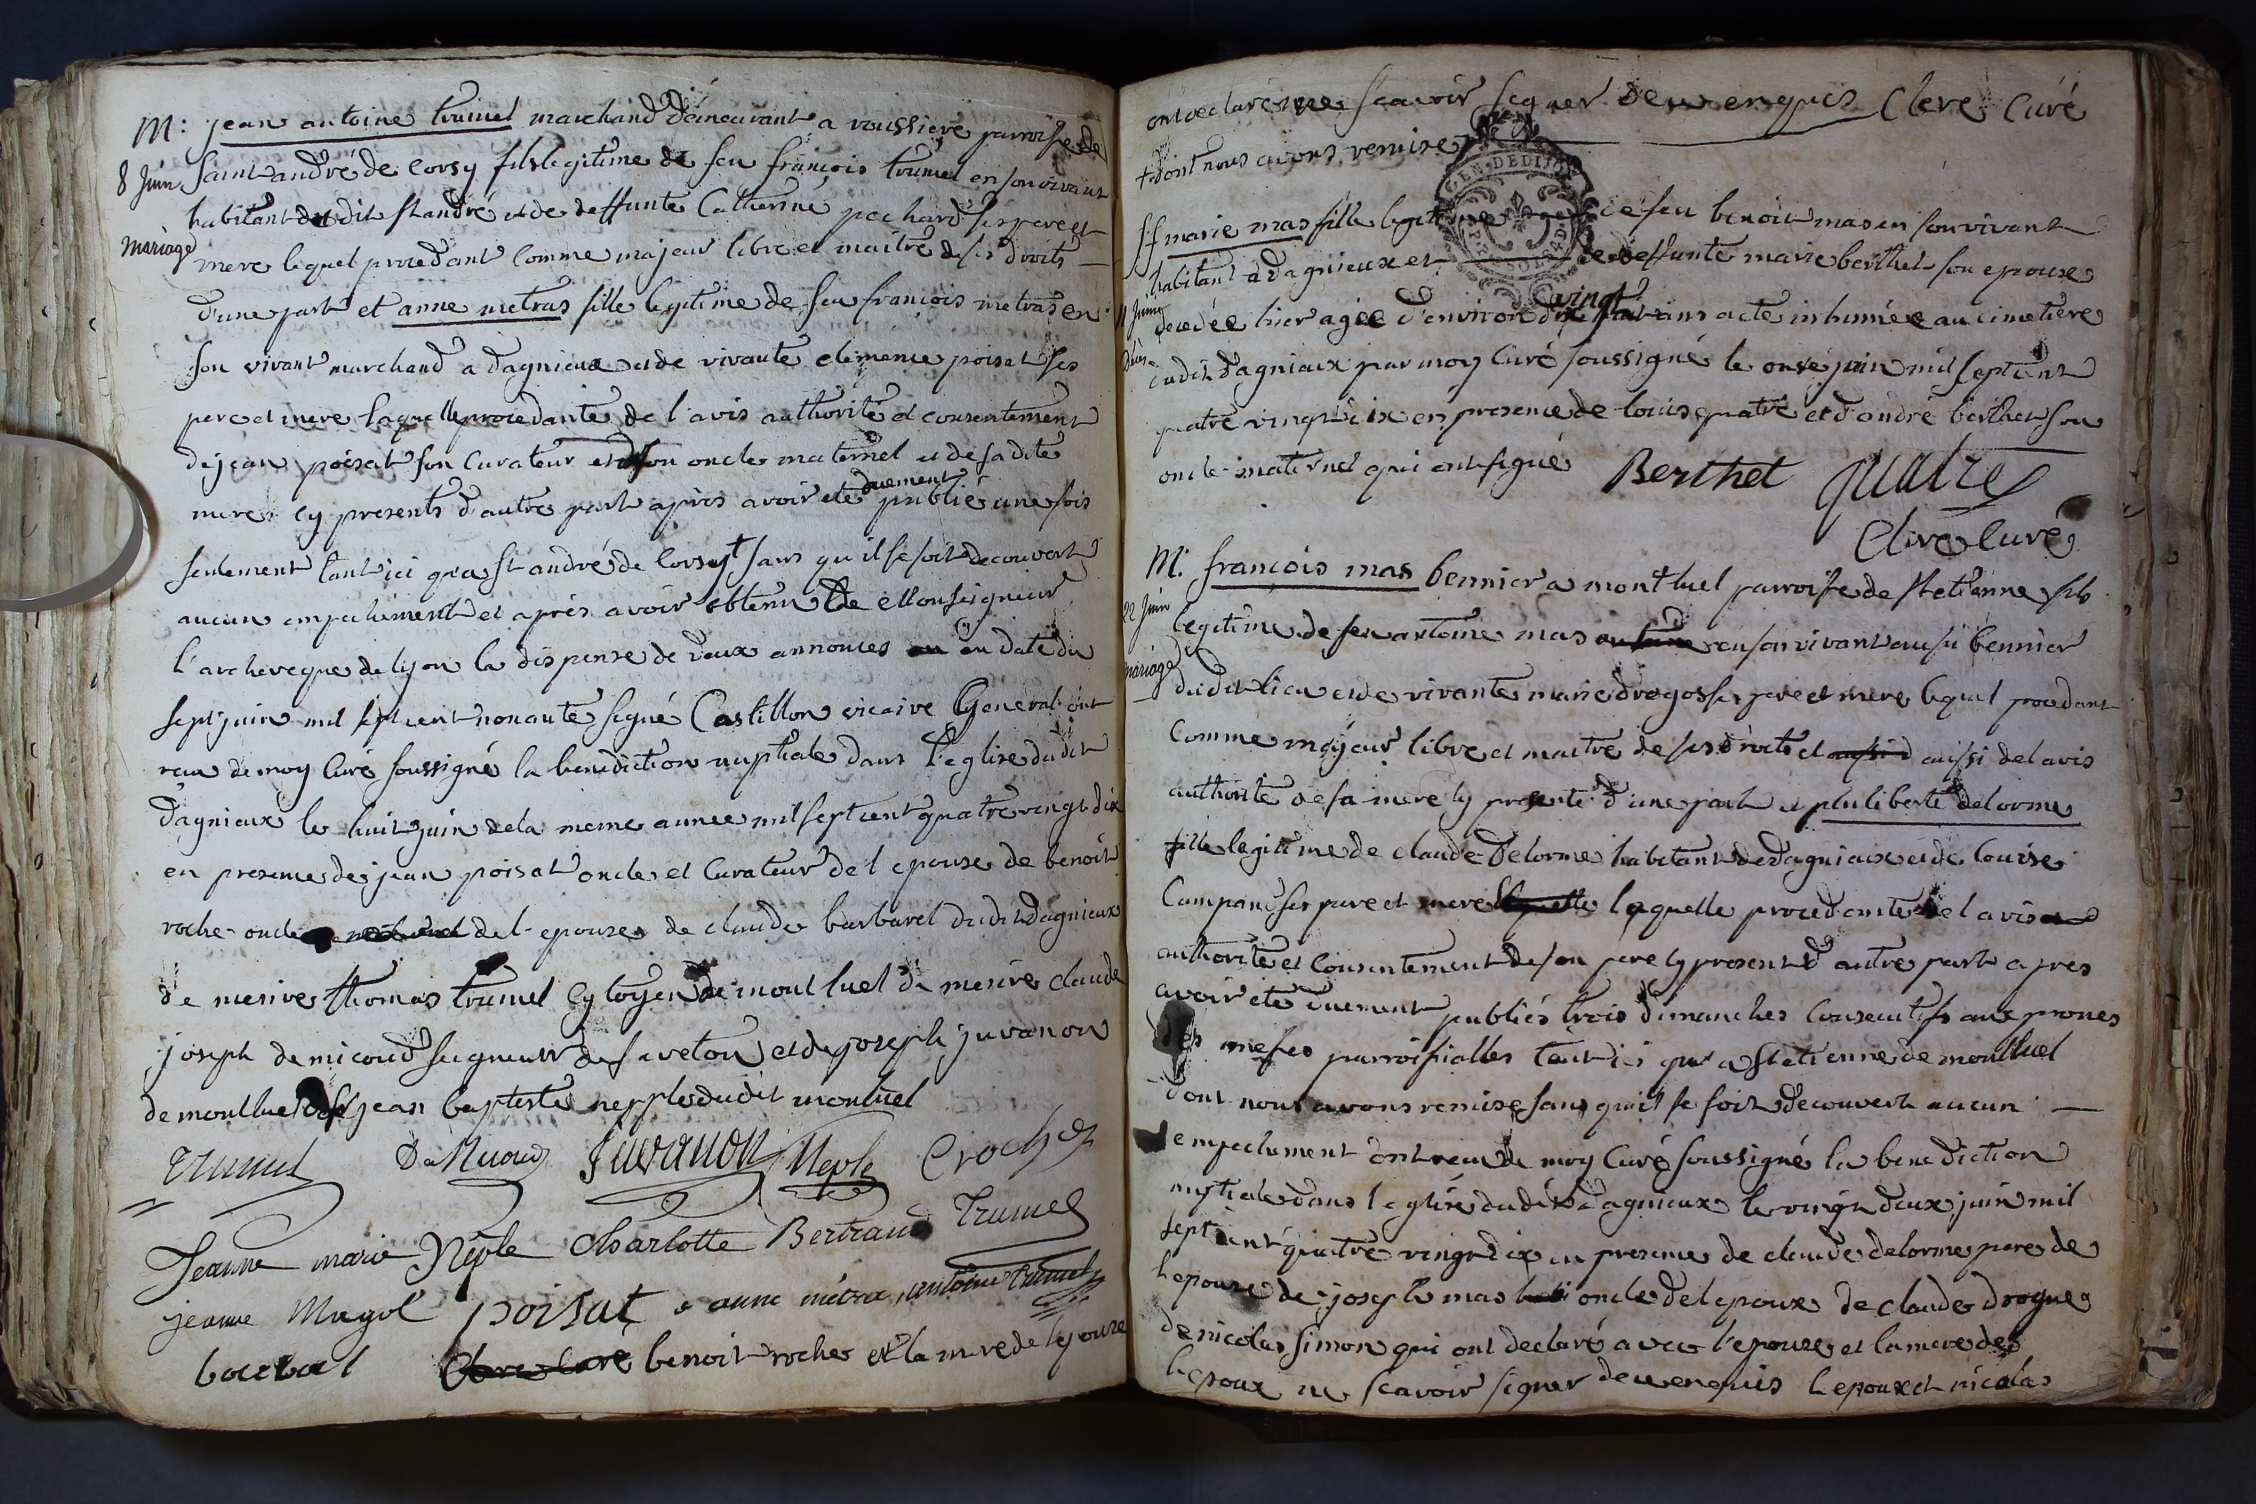 M: jean antoine trumel marchand demeurant a roussiere parroisse de
8 Juin saint andré de Corsy fils legitime de feu françois trumel en son vivant
habitant dudit st andré et de deffunte Catherine pochard ses pere et
Mariage mere lequel procedant comme majeur libre et maitre de ses droits
d'une part et anne metras fille legitime de feu françois metras en
son vivant marchand a dagnieux et de vivante clemence poisat ses
pere et mere laquelle procedante de l'avis authorité et consentement
de jean poisat son curateur et son oncle maternel et de sa dite
mere cy presents d'autre part après avoir été duement publié une fois
seulement tant ici qu'a st andré de Corsy + sans qu'il se soit decouvert
aucun empechement et après avoir obtenu de Monseigneur
l'archeveque de lyon la dispense de deux annonces en date du
sept juin mil sept cent nonante signé Castillon vicaire General ont
recu de moy Curé soussigné la benediction nuptiale dans l'eglise dudit
dagnieux le huit juin de la meme annee mil sept cent quatre vingt dix
en presence de jean poisat oncle et Curateur de l epouse de benoit
roche oncle de l epouse de claude barbarel dudit dagnieux
de messire thomas trumel Cytoyen de montluel de messire claude
joseph de micoud seigneur de et de joseph juvanon
de montluel jean baptiste nepple dudit montluel
Trumel DeMicoud Juvanon Neple C roche
Jeanne marie Neple Charlotte Bertrand Trumel
jeanne Magol poisat anne métras antoine trumel
benoit roche et la mere de lepouse
ont declaré ne scavoir signer de ce enquis Clere Curé
+ dont nous avons remise
ff marie mas fille legitime de feu benoit mas en son vivant
habitant a dagnieux et de deffunte marie berthet son epouse
11 Juin decedée hier agée d'environ vingt ans a eté inhumée au cimetière
dudit dagnieux par moy Curé soussigné le onze juin mil sept cent
quatre vingt dix en presence de louis quatre et d'andré berthet son
oncle maternel qui ont signé Berthet quatre
Clere Curé
M: françois mas bennier a montluel parroisse de st etienne fils
22 Juin legitime de feu antoine mas en son vivant aussi bennier
mariage dudit lieu et de vivante marie drogo ses pere et mere lequel procedant
Comme majeur libre et maitre de ses droits et aussi de l avis
authorité de sa mere cy presente d'une part et philiberte delorme
fille legitime de claude Delorme habitant de dagnieux et de louise
Campan ses pere et mere laquelle procedante de l avis
authorité et Consentement de son pere cy present d'autre part apres
avoir eté duement publiés trois dimanches Consecutifs aux prones
des messes parroissialles tant ici qu'a st etienne de montluel
dont nous avons remise sans qu'il se soit decouvert aucun
empechement ont recu de moy Curé soussigné la benediction
nuptiale dans l eglise dudit dagnieux le vingt deux juin mil
sept cent quatre vingt dix en presence de claude delorme pere de
lepouse de joseph mas oncle de l epoux de claude drogue
de nicolas simon qui ont declaré avec l'epouse et la mere de
lepoux ne scavoir signer de ce enquis lepoux et nicolas